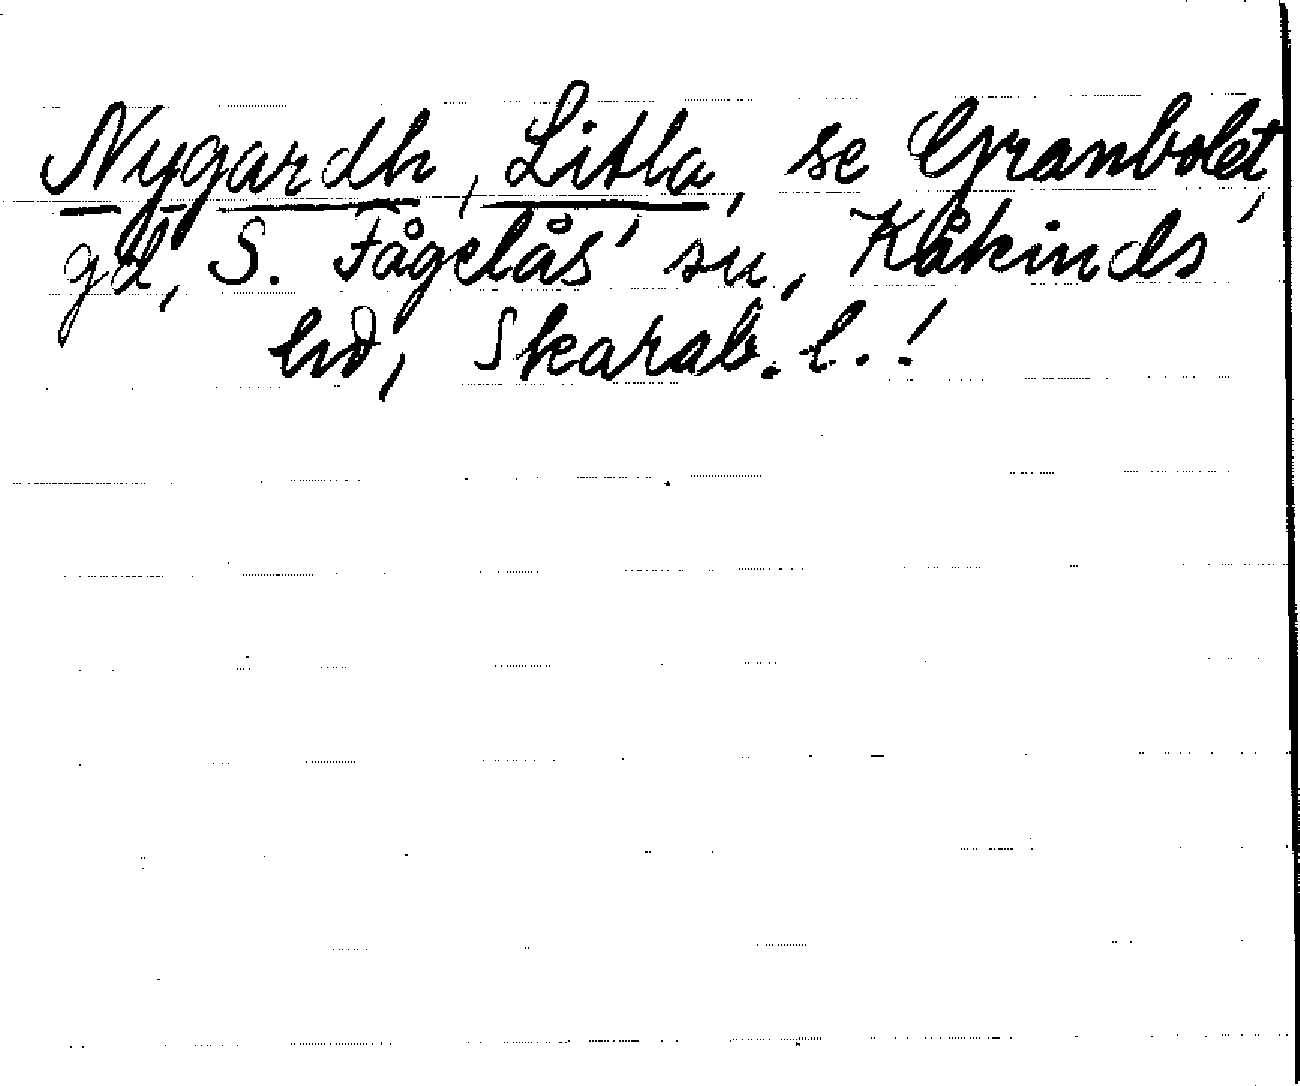 Nygardh, Litla, se Granbolet,
gd, S. Fågelås' sn, Kåkinds
hd, Skarab. l.!